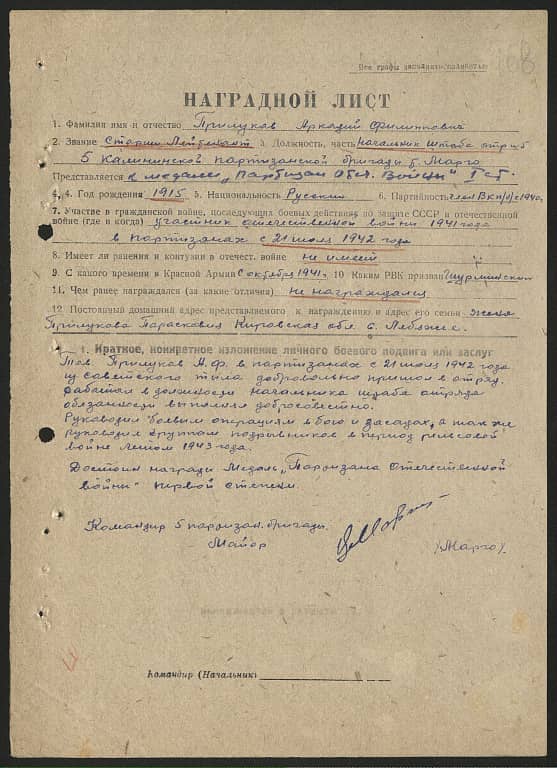 Все графы заполнять полностью
168
НАГРАДНОЙ ЛИСТ
1. Фамилия имя и отчество Прилуков Аркадий Филиппович
2. Звание Старши Лейтенант 3. Должность, часть Начальник штаба отряд
5 Калининской партизанской бригады т. Марго
Представляется к медали „Партизан Отеч. Войны" I ст.
4. Год рождения 1915 5. Национальность Русский 6. Партийность член ВКП(б) с 1940г.
7. Участие в гражданской войне, последующих боевых действиях по защите СССР и отечественной
войне (где и когда) участник отечественной войны 1941 года
в партизанах с 21 июля 1942 года
8. Имеет ли ранения и контузии в отечест. войне не имеет
9. С какого времени в Красной Армии с октября 1941г. 10 Каким РВК призван Шурминским
11. Чем ранее награждался (за какие отличия) не награждался
12 Постоянный домашний адрес представляемого к награждению и адрес его семьи жена
Прилукова Парасковия Кировская обл с. Лебяжье
1. Краткое, конкретное изложение личного боевого подвига или заслуг
Тов. Прилуков А.Ф. в партизанах с 21 июля 1942 года
из советского тыла добровольно пришол в отряд.
работая в должности начальника штаба отряда
обязанности выполнял добросовестно.
Руководил боевым операциям в бою и засадах, а так же
руководил группой подрывников в период рельсовой
войне летом 1943 года.
Достоин награди Медаль „Партизана Отечественной
войны" первой степени.
Командир 5 партизан. бригады
Майор /Марго/
Командир (Начальник)